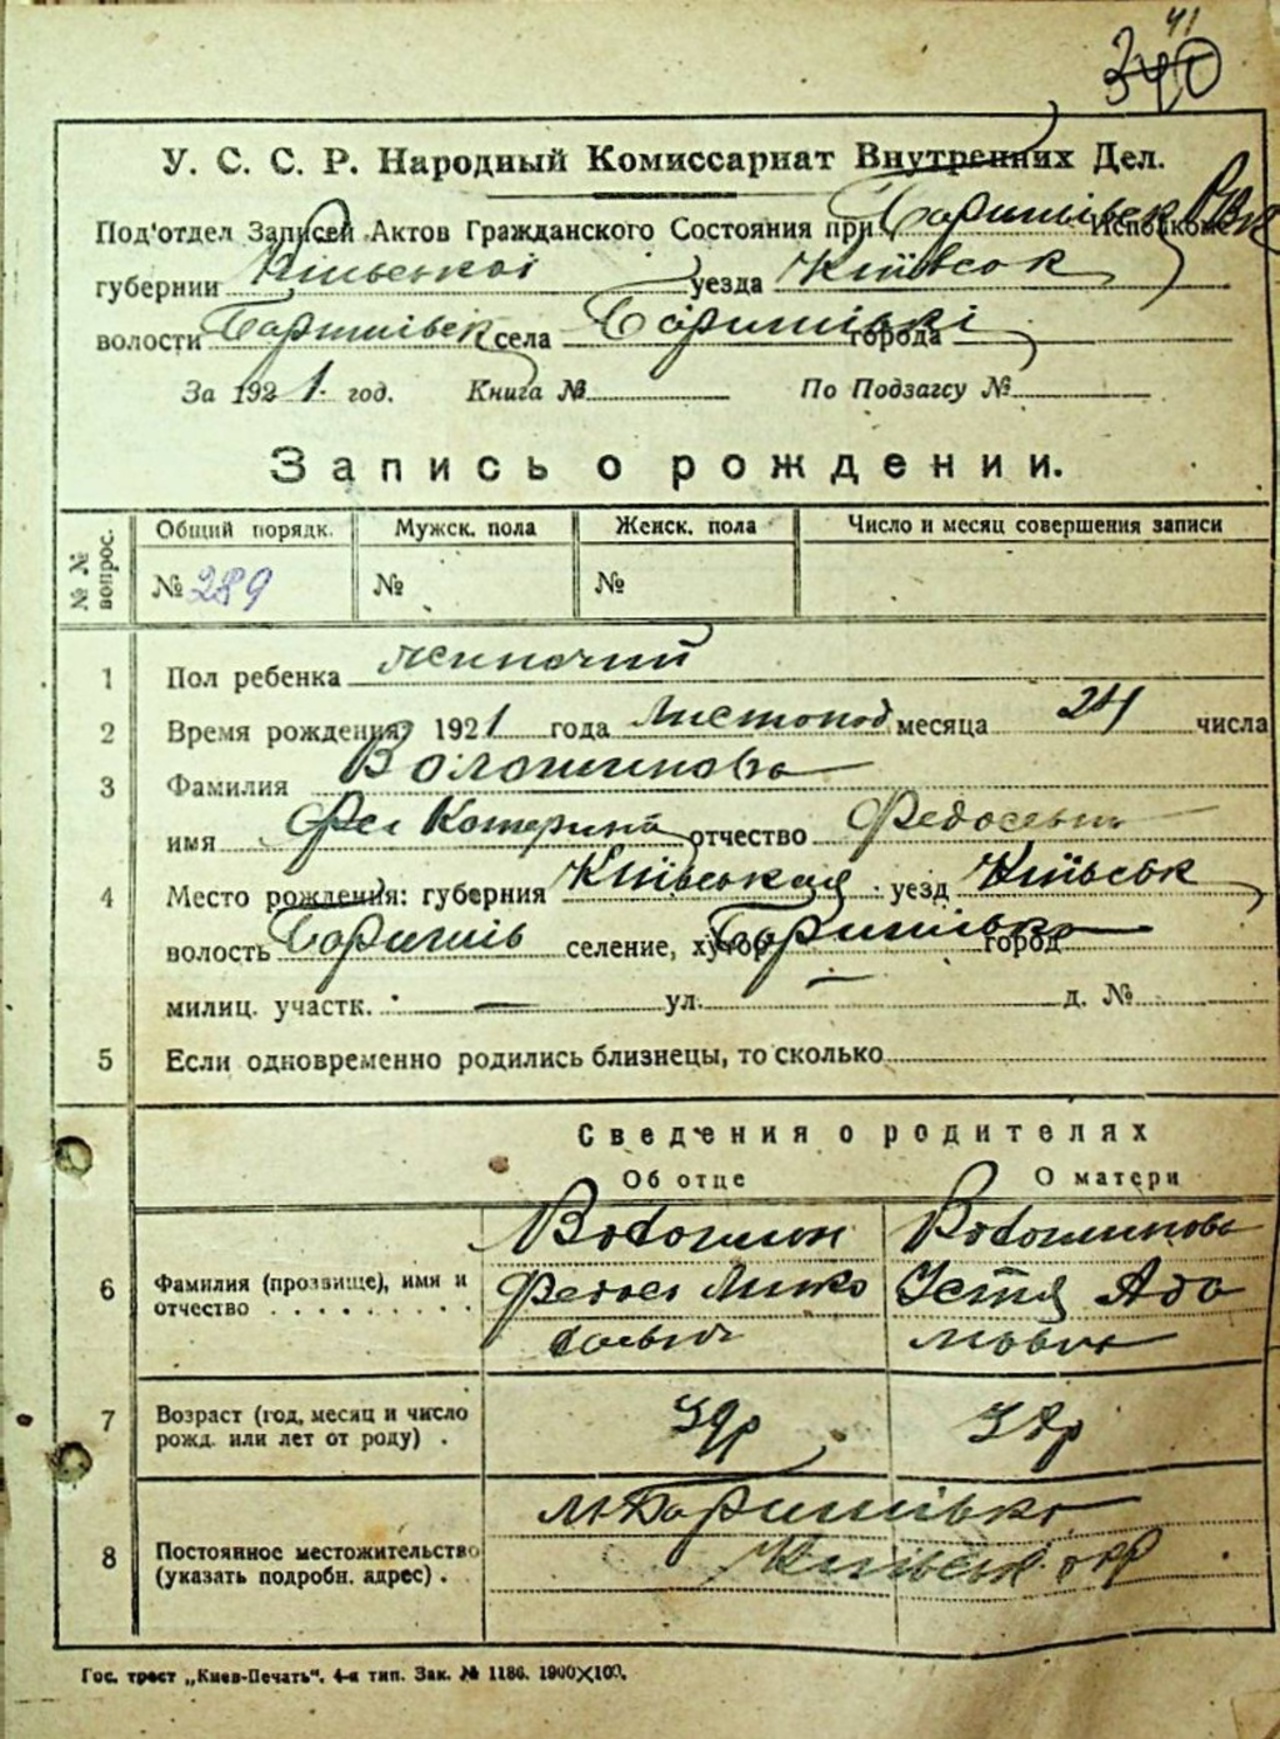 41
340
У. С. С. Р. Народный Комиссариат Внутренних Дел.
Под'отдел Записей Актов Гражданского Состояния при Баришівськ Исполкоме
губернии Київської уезда Київськ
волости Баришівськ села Баришівкі города
За 1921. год. Книга № По Подзагсу №
Запись о рождении.
№ № вопрос. Общий порядк. Мужск. пола Женск. пола Число и месяц совершения записи
№ 289 № №
1 Пол ребенка жиночий
2 Время рождения: 1921 года Листопад месяца 24 числа
3 Фамилия Волошинова
имя Катерина отчество Федосеьи
4 Место рождения: губерния Київськая уезд Київськ
волость Баришів селение, хутор Баришівка город
милиц. участк. : — ул. — д. №
5 Если одновременно родились близнецы, то сколько
Сведения о родителях
Об отце О матери
6 Фамилия (прозвище), имя и отчество . . . . . . . . .
Волошин Волошинова
Федось Мико Устя Ада
лаьвич мовна
7 Возраст (год, месяц и число рожд. или лет от роду) .
39р 37р
8 Постоянное местожительство (указать подробн. адрес) .
м Баришівка
Київськ окр
Гос. трест „Киев-Печать“. 4-я тип. Зак. № 1186. 1900×100.